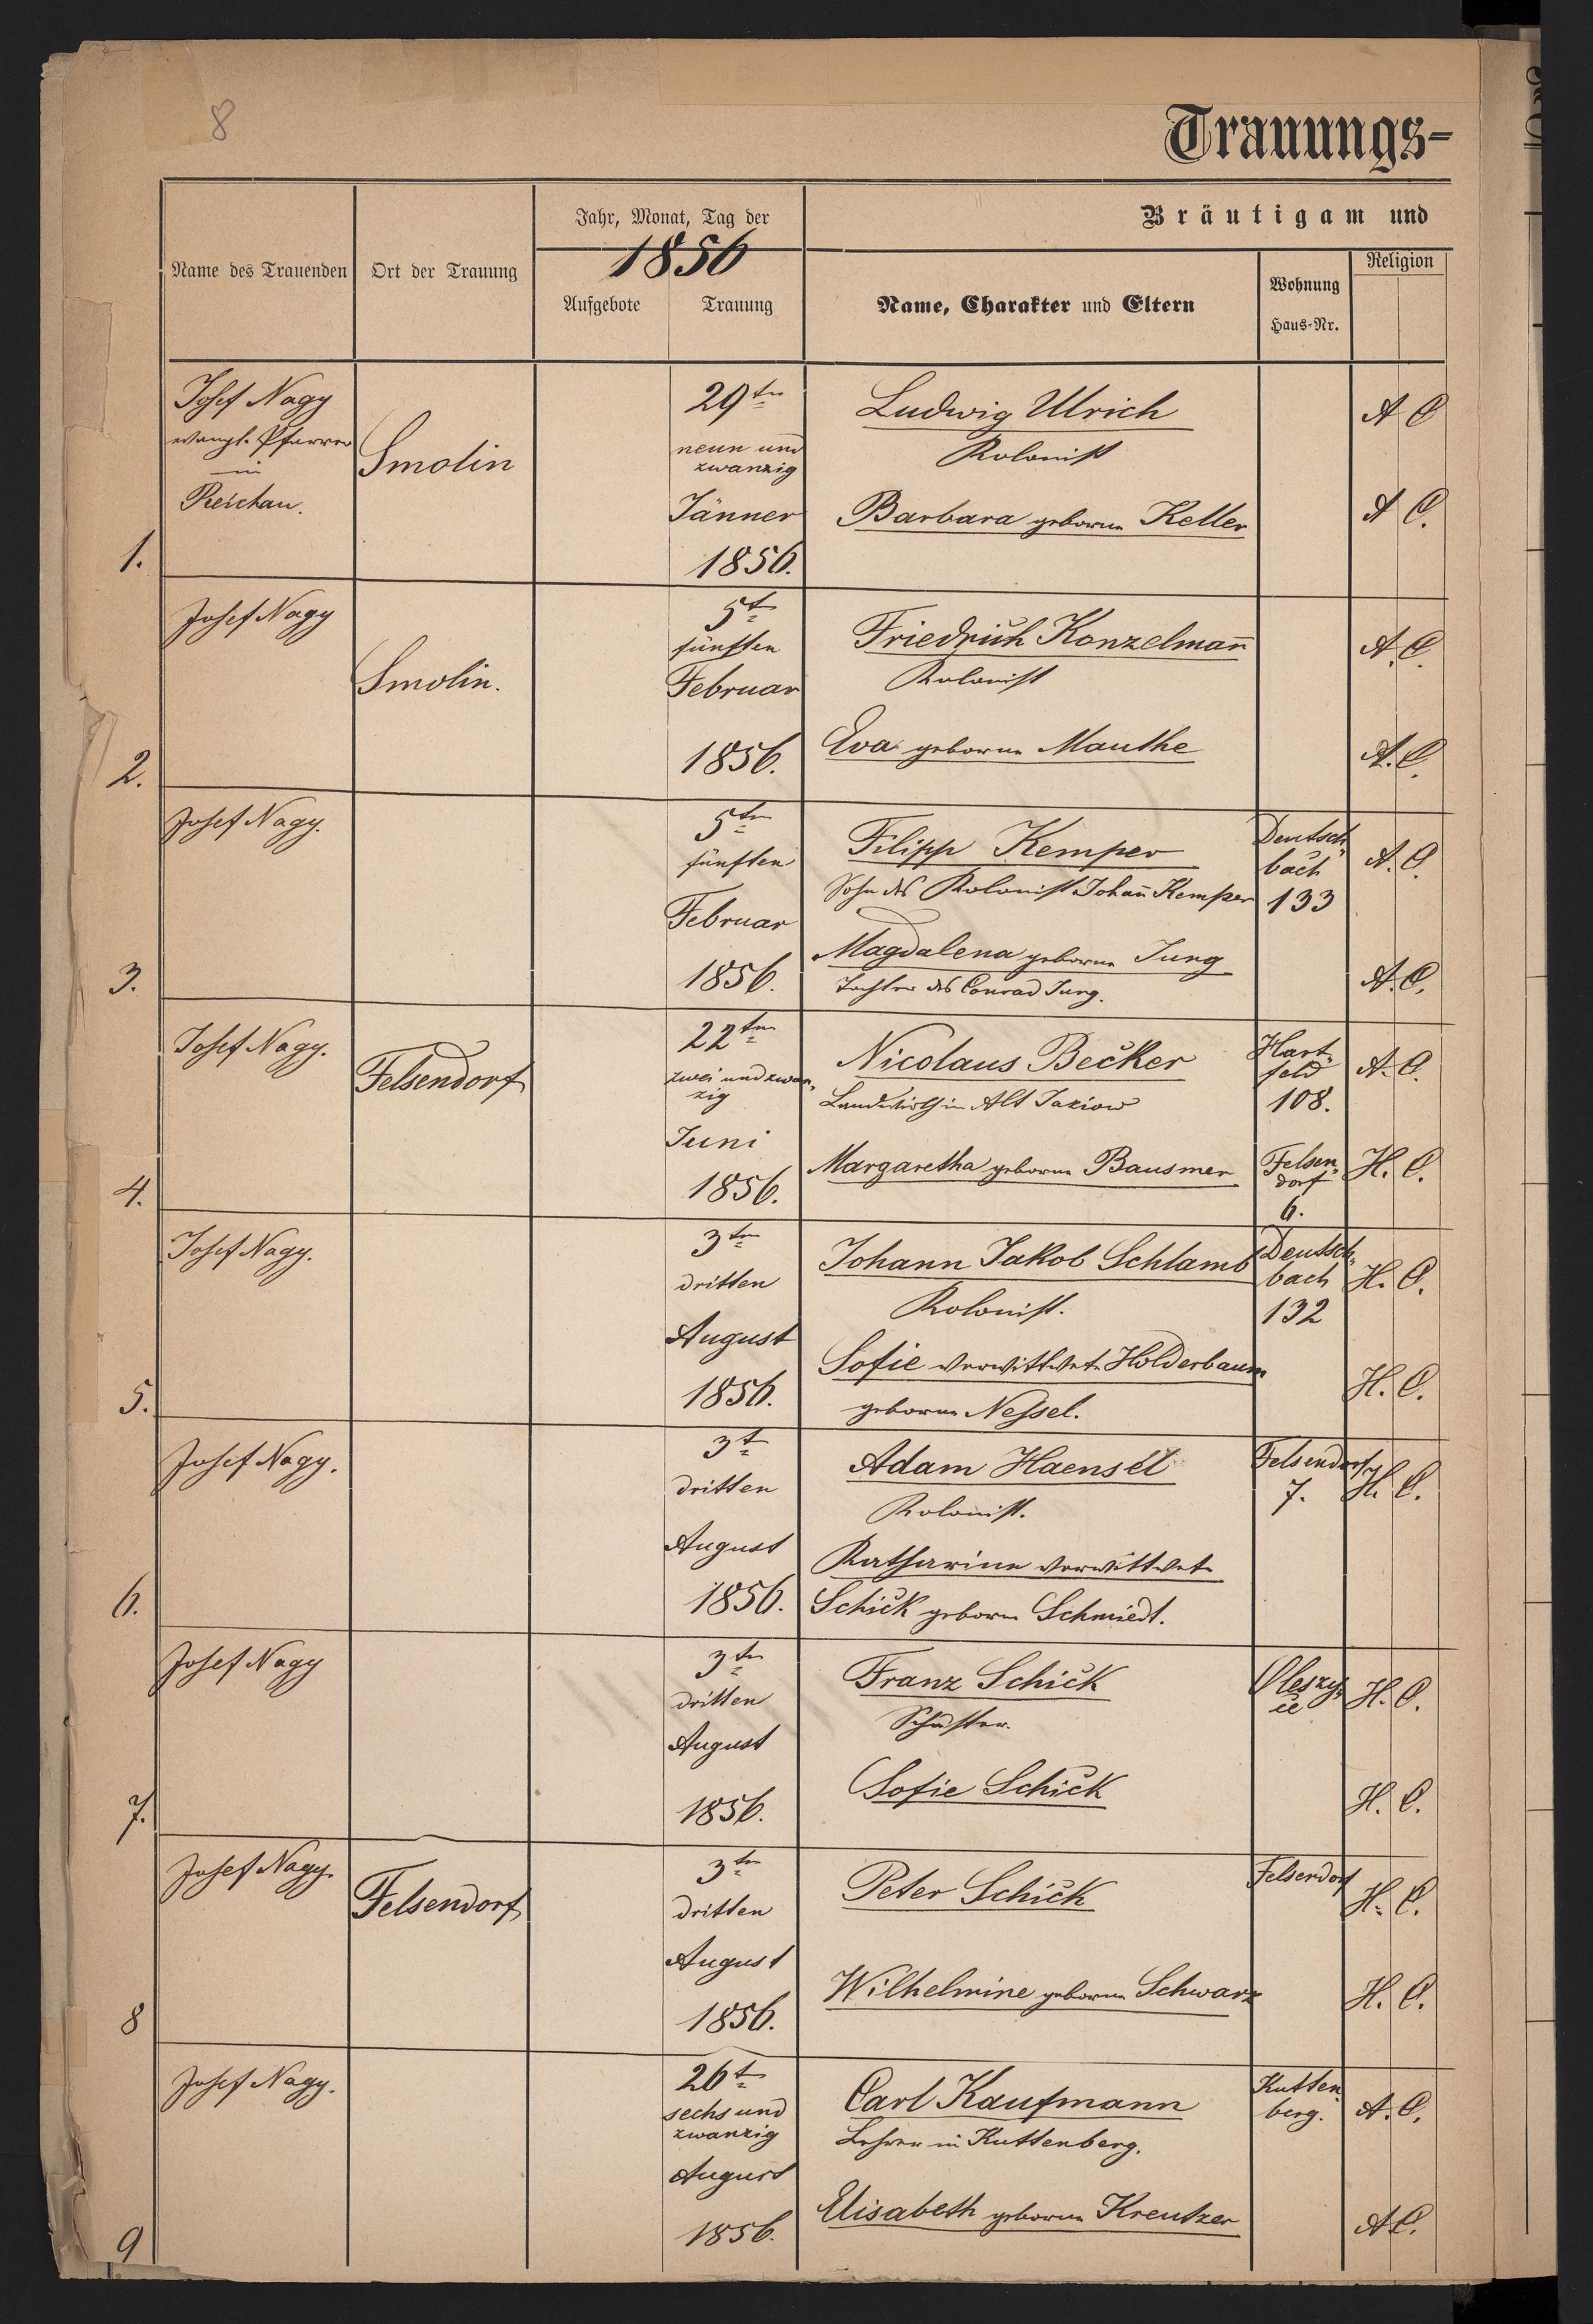 8
Trauungs-
Name des Trauenden
Ort der Trauung
Jahr, Monat, Tag der
1856
Aufgebote
Trauung
Bräutigam und
Name, Charakter und Eltern
Wohnung
Haus-Nr.
Religion
1.
Josef Nagy
evangl. Pfarrer
in
Reichau.
Smolin
29ten
neun und
zwanzig
Jänner
1856.
Ludwig Ulrich
Kolonist
Barbara geborne Keller
A C
A C.
2.
Josef Nagy
Smolin.
5t
fünften
Februar
1856.
Friedrich Konzelmañ
Kolonist
Eva geborne Mauthe
A. C.
A. C.
3.
Josef Nagy.
5ten
fünften
Februar
1856.
Filipp Kemper
Sohn des Kolonist Johañ Kemper
Magdalena geborne Jung
Tochter des Conrad Jung.
Deutsch-
bach
133
A. C.
A. C.
4.
Josef Nagy.
Felsendorf
22ten
zwei und zwan-
zig
Juni
1856.
Nicolaus Becker
Landwirth in Alt Jaziow
Margaretha geborne Bausmer
Hart-
feld
108.
Felsen-
dorf
6.
A. C.
H. C.
5.
Josef Nagy.
3ten
dritten
August
1856.
Johann Jakob Schlamb
Kolonist.
Sofie verwittwete Holderbaum
geborne Nessel.
Deutsch-
bach
132
H. C.
H. C.
6.
Josef Nagy.
3t
dritten
August
1856.
Adam Haensel
Kolonist.
Katharine verwittwete
Schick geborne Schmiedt.
Felsendorf
7.
H. C.
7.
Josef Nagy
3ten
dritten
August
1856.
Franz Schick
Schuster.
Sofie Schick
Oleszy-
ce
H. C.
H. C.
8
Josef Nagy.
Felsendorf
3ten
dritten
August
1856.
Peter Schick
Wilhelmine geborne Schwarz
Felsendorf
H. C.
H. C.
9
Josef Nagy.
26t
sechs und
zwanzig
August
1856.
Carl Kaufmann
Lehrer in Kuttenberg.
Elisabeth geborne Kreutzer
Kutten-
berg.
A. C.
A C.